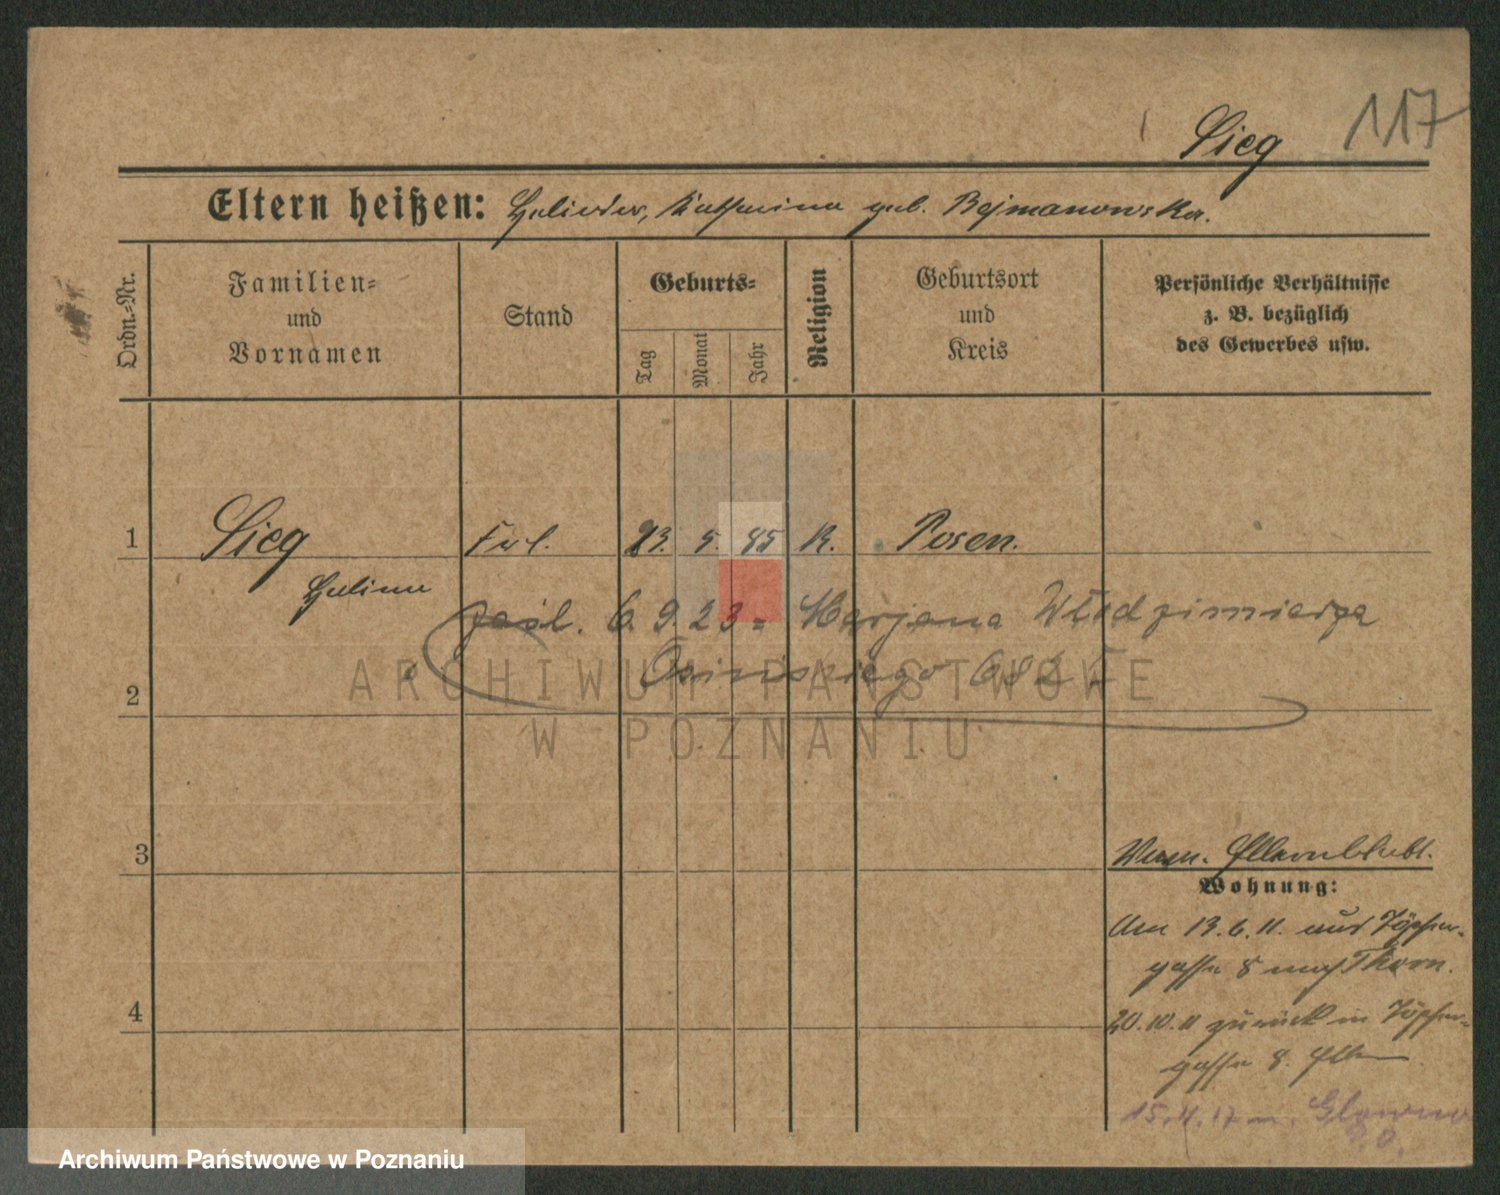 Sieg 117
Eltern heißen: Katharina geb. Bejmanowska.
Ordn.-Nr.
Familien- und Vornamen
Stand
Geburts-
Tag
Monat
Jahr
Religion
Geburtsort und Kreis
Persönliche Verhältnisse
z. B. bezüglich
des Gewerbes usw.
1 Sieg Frl. 23. 5. 85 K. Posen.
Halina
6. 9. 23 = Marjana Włodzimierza
2 Osińskiego
3
Wohnung:
Am 13.6.11. aus Töpfer-
gasse 8 nach Thorn.
4
20.10.11 zurück in Töpfer-
gasse 8.
15.4.17 n.
ARCHIWUM PAŃSTWOWE
W POZNANIU
Archiwum Państwowe w Poznaniu